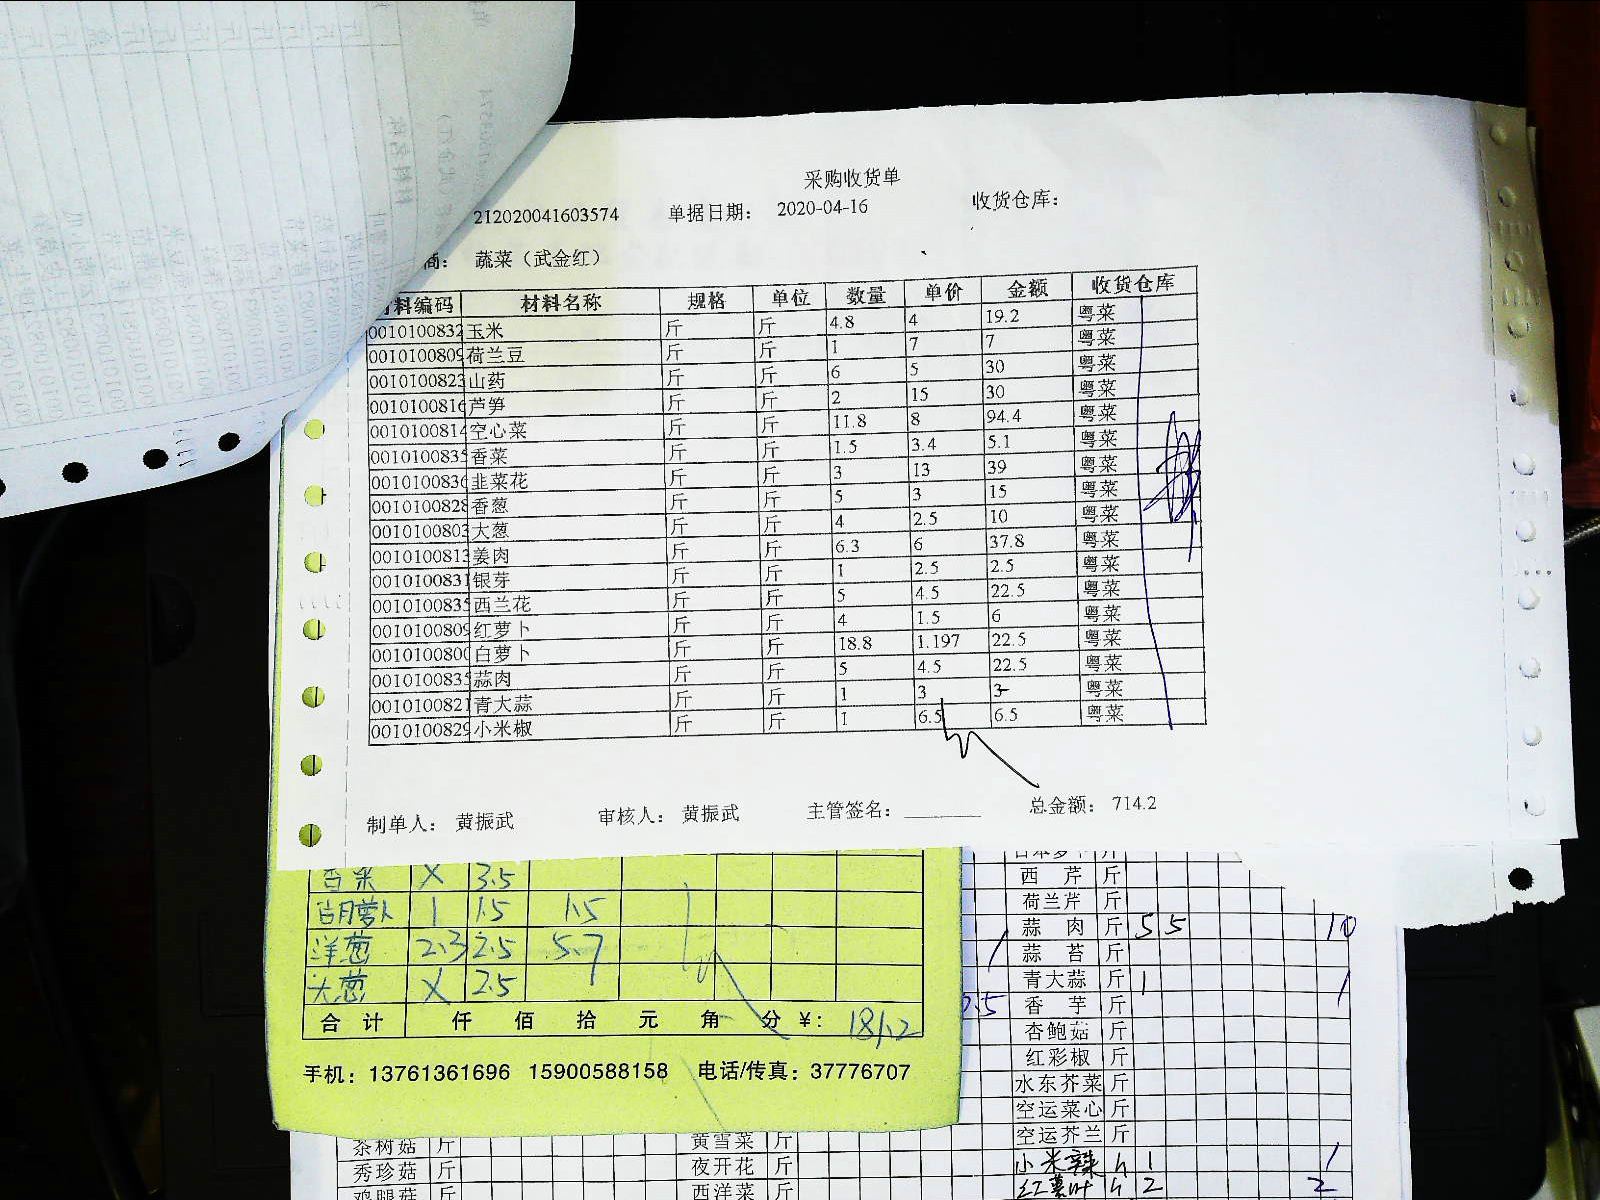 采购收货单
212020041603574 单据日期： 2020-04-16 收货仓库：
商： 蔬菜（武金红）
料编码 材料名称 规格 单位 数量 单价 金额 收货仓库
0010100832 玉米 斤 斤 4.8 4 19.2 粤菜
0010100809 荷兰豆 斤 斤 1 7 7 粤菜
0010100823 山药 斤 斤 6 5 30 粤菜
0010100816 芦笋 斤 斤 2 15 30 粤菜
0010100814 空心菜 斤 斤 11.8 8 94.4 粤菜
0010100835 香菜 斤 斤 1.5 3.4 5.1 粤菜
0010100836 韭菜花 斤 斤 3 13 39 粤菜
0010100828 香葱 斤 斤 5 3 15 粤菜
0010100803 大葱 斤 斤 4 2.5 10 粤菜
0010100813 姜肉 斤 斤 6.3 6 37.8 粤菜
0010100831 银芽 斤 斤 1 2.5 2.5 粤菜
0010100835 西兰花 斤 斤 5 4.5 22.5 粤菜
0010100809 红萝卜 斤 斤 4 1.5 6 粤菜
0010100800 白萝卜 斤 斤 18.8 1.197 22.5 粤菜
0010100835 蒜肉 斤 斤 5 4.5 22.5 粤菜
0010100821 青大蒜 斤 斤 1 3 3 粤菜
0010100829 小米椒 斤 斤 1 6.5 6.5 粤菜
制单人： 黄振武 审核人： 黄振武 主管签名： 总金额： 714.2
香菜 X 3.5
胡萝卜 1 1.5 1.5
洋葱 2.3 2.5 5.7
大葱 X 2.5
合 计 仟 佰 拾 元 角 分 ¥:
手机：13761361696 15900588158 电话/传真：37776707
西 芹 斤
荷兰芹 斤
蒜 肉 斤 5 5 10
蒜 苔 斤
青大蒜 斤 1 1
香 芋 斤
杏鲍菇 斤
红彩椒 斤
水东芥菜 斤
空运菜心 斤
空运芥兰 斤
茶树菇 斤 黄雪菜 斤 小米辣 1 1
秀珍菇 斤 夜开花 斤 红薯叶 2 2
鸡腿菇 斤 西洋菜 斤